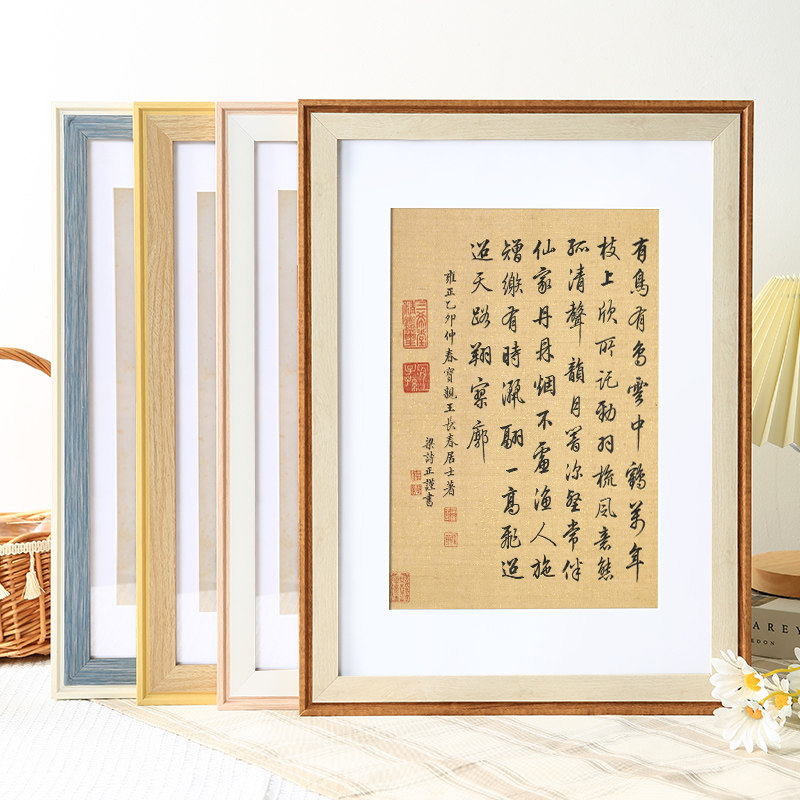 有鳥有鳥雲中鶴萬年
枝上欣所託勁羽梳風意態
孤清聲韻月深壑常伴
仙家丹烟不虞漁人施
矰繳有時灑翮一高飛迢
迢天路翔寥廓
雍正乙卯仲春寶親王長春居士著
梁詩正謹書
AREY
EDON